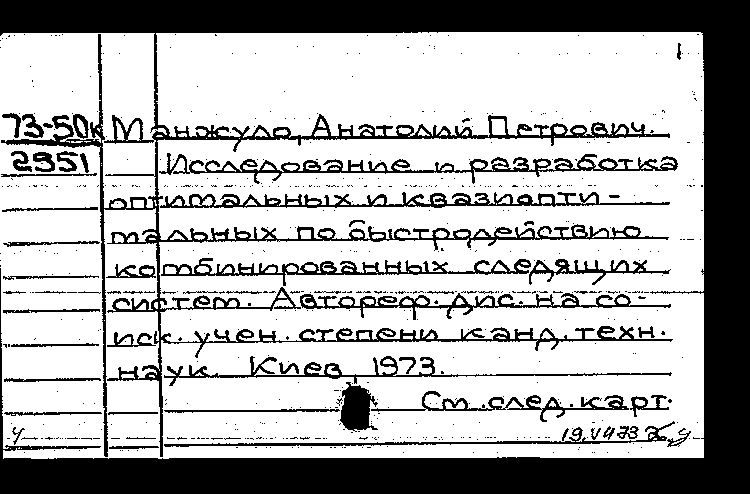 1
73-50к Манжуло, Анатолий Петрович.
2951 Исследование и разработка
оптимальных и квазиопти-
мальных по быстродействию
комбинированных следящих
систем. Автореф. дис. на со-
иск. учен. степени канд. техн.
наук. Киев, 1973.
См. след. карт.
ч 19.VII73